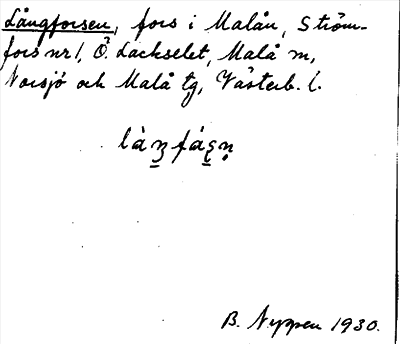 Långforsen, fors i Malån, Ström-
fors nr 1, Ö. Lackselet, Malå sn,
Norsjö och Malå tg, Västerb. l.
B. Nyppen 1930.